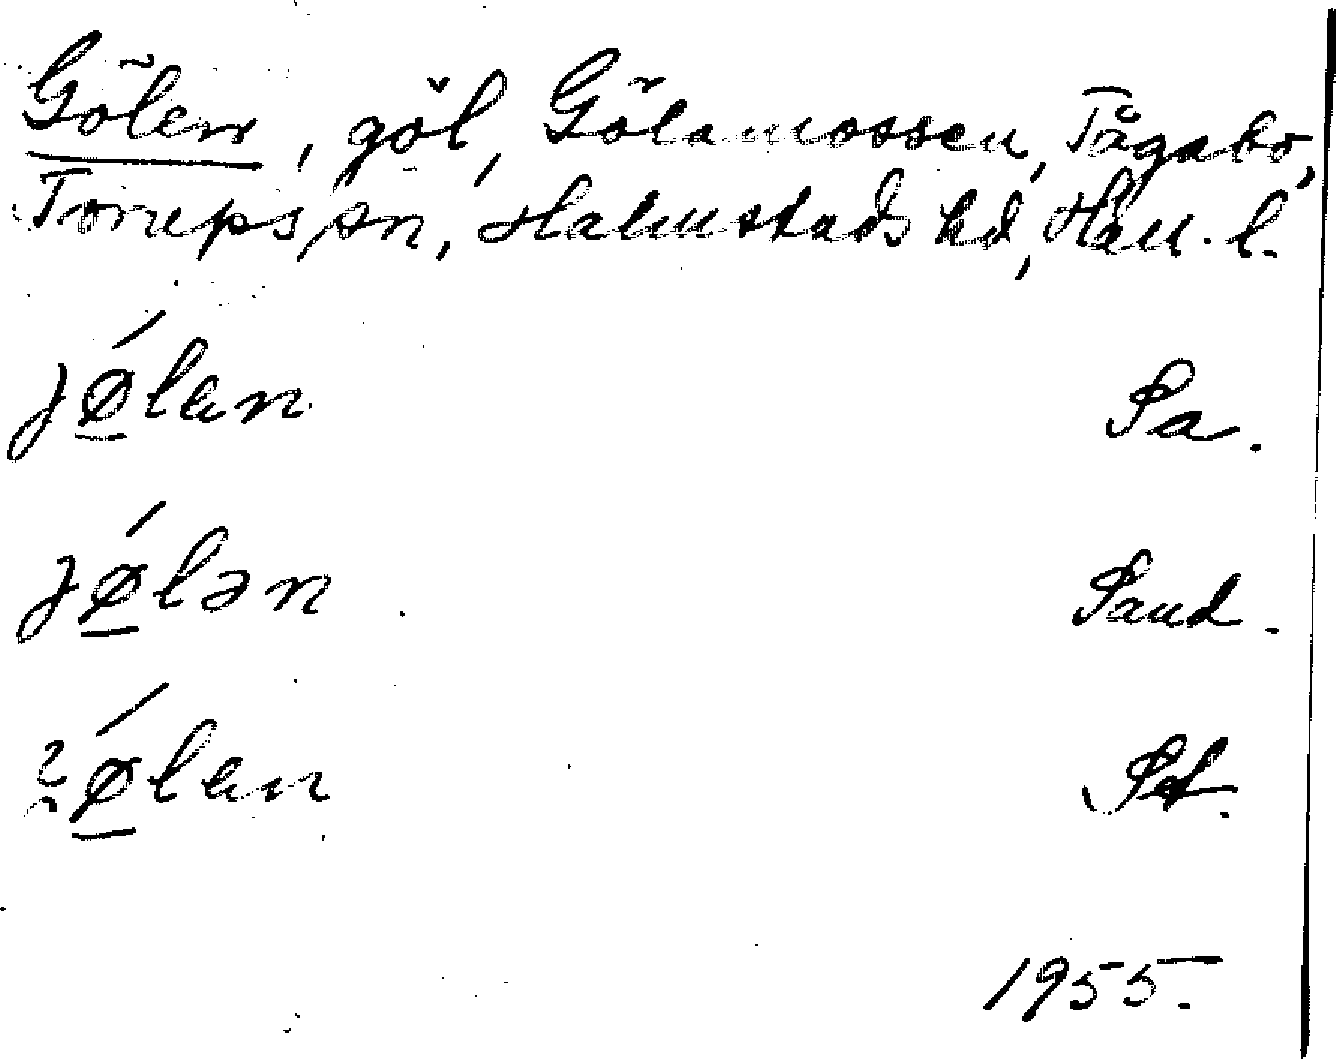 Gölen, göl, Gölamossen, Tågabo,
Torups sn, Halmstads hd, Hall. l.
jǿ̱lan Sa.
jǿ̱lən Sand.
ǿ̱lan
1955.